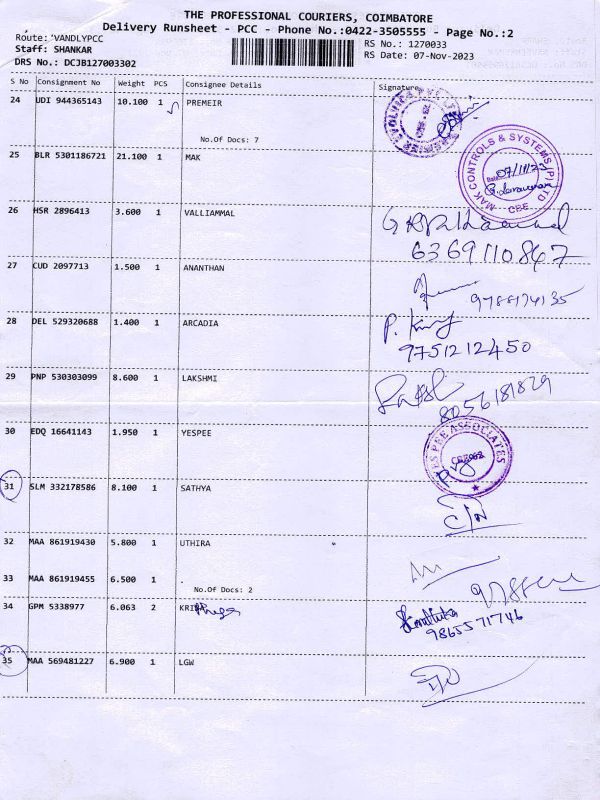 THE PROFESSIONAL COURIERS, COIMBATORE
Delivery Runsheet - PCC - Phone No.:0422-3505555 - Page No.:2
Route: 'VANDLYPCC
RS No.: 1270033
Staff: SHANKAR
RS Date: 07-Nov-2023
DRS No.: DCJB127003302
S No Consignment No Weight PCS Consignee Details Signature
24 UDI 944365143 10.100 1 PREMEIR
No.Of Docs: 7
25 BLR 5301186721 21.100 1 MAK
MAK CONTROLS & SYSTEMS (P) LTD
07/11/23
CBE
26 HSR 2896413 3.600 1 VALLIAMMAL
6369110847
27 CUD 2097713 1.500 1 ANANTHAN
9788174135
28 DEL 529320688 1.400 1 ARCADIA
P.
9751212450
29 PNP 530303099 8.600 1 LAKSHMI
8056181829
30 EDQ 16641143 1.950 1 YESPEE
YES PEE ASSOCIATES
31 SLM 332178586 8.100 1 SATHYA
32 MAA 861919430 5.800 1 UTHIRA
33 MAA 861919455 6.500 1
No.Of Docs: 2
34 GPM 5338977 6.063 2
9865571746
35 MAA 569481227 6.900 1 LGW